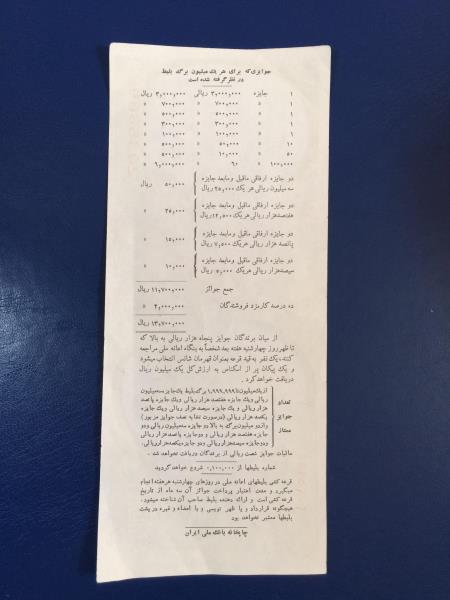 جوایزی که برای هر یک میلیون برگ بلیط
در نظر گرفته شده است
۱ جایزه ۳,۰۰۰,۰۰۰ ریالی ۳,۰۰۰,۰۰۰ ریال
۱ » ۷۰۰,۰۰۰ » ۷۰۰,۰۰۰ »
۱ » ۵۰۰,۰۰۰ » ۵۰۰,۰۰۰ »
۱ » ۳۰۰,۰۰۰ » ۳۰۰,۰۰۰ »
۱ » ۱۰۰,۰۰۰ » ۱۰۰,۰۰۰ »
۱۰ » ۵۰,۰۰۰ » ۵۰۰,۰۰۰ »
۵۰ » ۱۰,۰۰۰ » ۵۰۰,۰۰۰ »
۱۰۰,۰۰۰ » ۶۰ » ۶,۰۰۰,۰۰۰ »
دو جایزه ارفاقی ماقبل و مابعد جایزه
سه میلیون ریالی هر یک ۲۵,۰۰۰ ریال ۵۰,۰۰۰ ریال
دو جایزه ارفاقی ماقبل و مابعد جایزه
هفتصد هزار ریالی هر یک ۱۲,۵۰۰ ریال ۲۵,۰۰۰ »
دو جایزه ارفاقی ماقبل و مابعد جایزه
پانصد هزار ریالی هر یک ۷,۵۰۰ ریال ۱۵,۰۰۰ »
دو جایزه ارفاقی ماقبل و مابعد جایزه
سیصد هزار ریالی هر یک ۵,۰۰۰ ریال ۱۰,۰۰۰ »
جمع جوائز ۱۱,۷۰۰,۰۰۰ ریال
ده درصد کارمزد فروشندگان ۲,۰۰۰,۰۰۰ »
۱۳,۷۰۰,۰۰۰ ریال
از میان برندگان جوایز پنجاه هزار ریالی به بالا که
تا ظهر روز چهارشنبه هفته بعد شخصاً به بنگاه اعانه ملی مراجعه
کنند، یک نفر به قید قرعه بعنوان قهرمان شانس انتخاب میشود
و یک پیکان پر از اسکناس به ارزش کل یک میلیون ریال
دریافت خواهد کرد.
تعداد جوایز ممتاز
از یک میلیون تا ۱,۹۹۹,۹۹۹ برگ بلیط یک جایزه سه میلیون
ریالی و یک جایزه هفتصد هزار ریالی و یک جایزه پانصد
هزار ریالی و یک جایزه سیصد هزار ریالی و یک جایزه
یکصد هزار ریالی
و از دو میلیون برگ به بالا دو جایزه سه میلیون ریالی و دو
جایزه هفتصد هزار ریالی و دو جایزه پانصد هزار ریالی و
دو جایزه سیصد هزار ریالی و دو جایزه یکصد هزار ریالی.
مالیات جوایز شصت ریالی از برندگان دریافت نخواهد شد.
شماره بلیطها از ۰,۱۰۰,۰۰۰ شروع خواهد گردید
قرعه کشی بلیطهای اعانه ملی در روزهای چهارشنبه هر هفته انجام
میگیرد و مدت اعتبار پرداخت جوائز آن سه ماه از تاریخ
قرعه کشی است و ارائه دهنده بلیط صاحب آن شناخته میشود.
هیچگونه قرارداد و یا ظهر نویسی و یا امضاء و غیره در پشت
بلیطها معتبر نخواهد بود
چاپخانه بانک ملی ایران